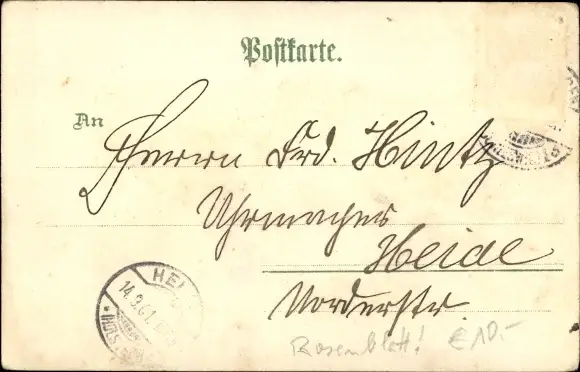 Postkarte.
An
Herrn Frd. Hintz
Uhrmacher
Heide
Norderstr.
HEI
14.9.01
Rosenblatt! € 10.-